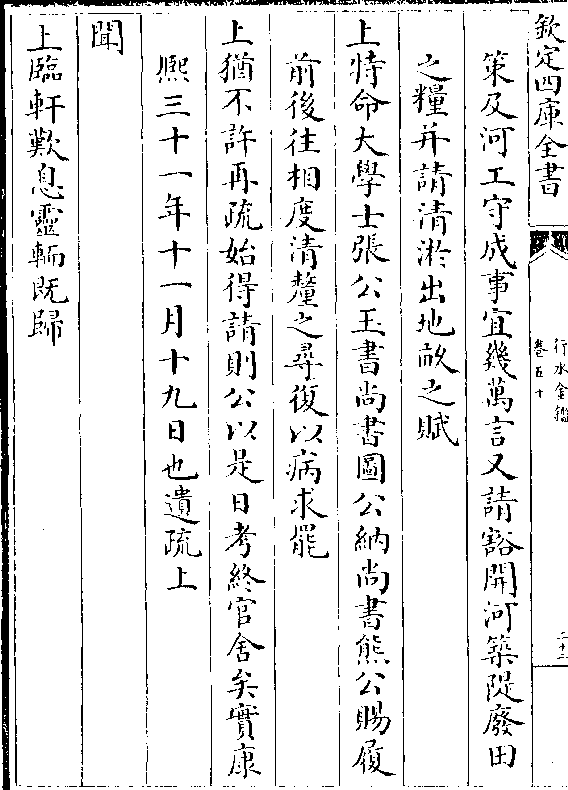 欽定四庫全書
行水金鑑
卷五十
二十二
策及河工守成事宜幾萬言又請豁開河築隄廢田
之糧并請清淤出地畝之賦
上特命大學士張公玉書尚書圖公納尚書熊公賜履
前後往相度清釐之尋復以病求罷
上猶不許再疏始得請則公以是日考終官舍矣實康
熙三十一年十一月十九日也遺疏上
聞
上臨軒歎息靈輀既歸